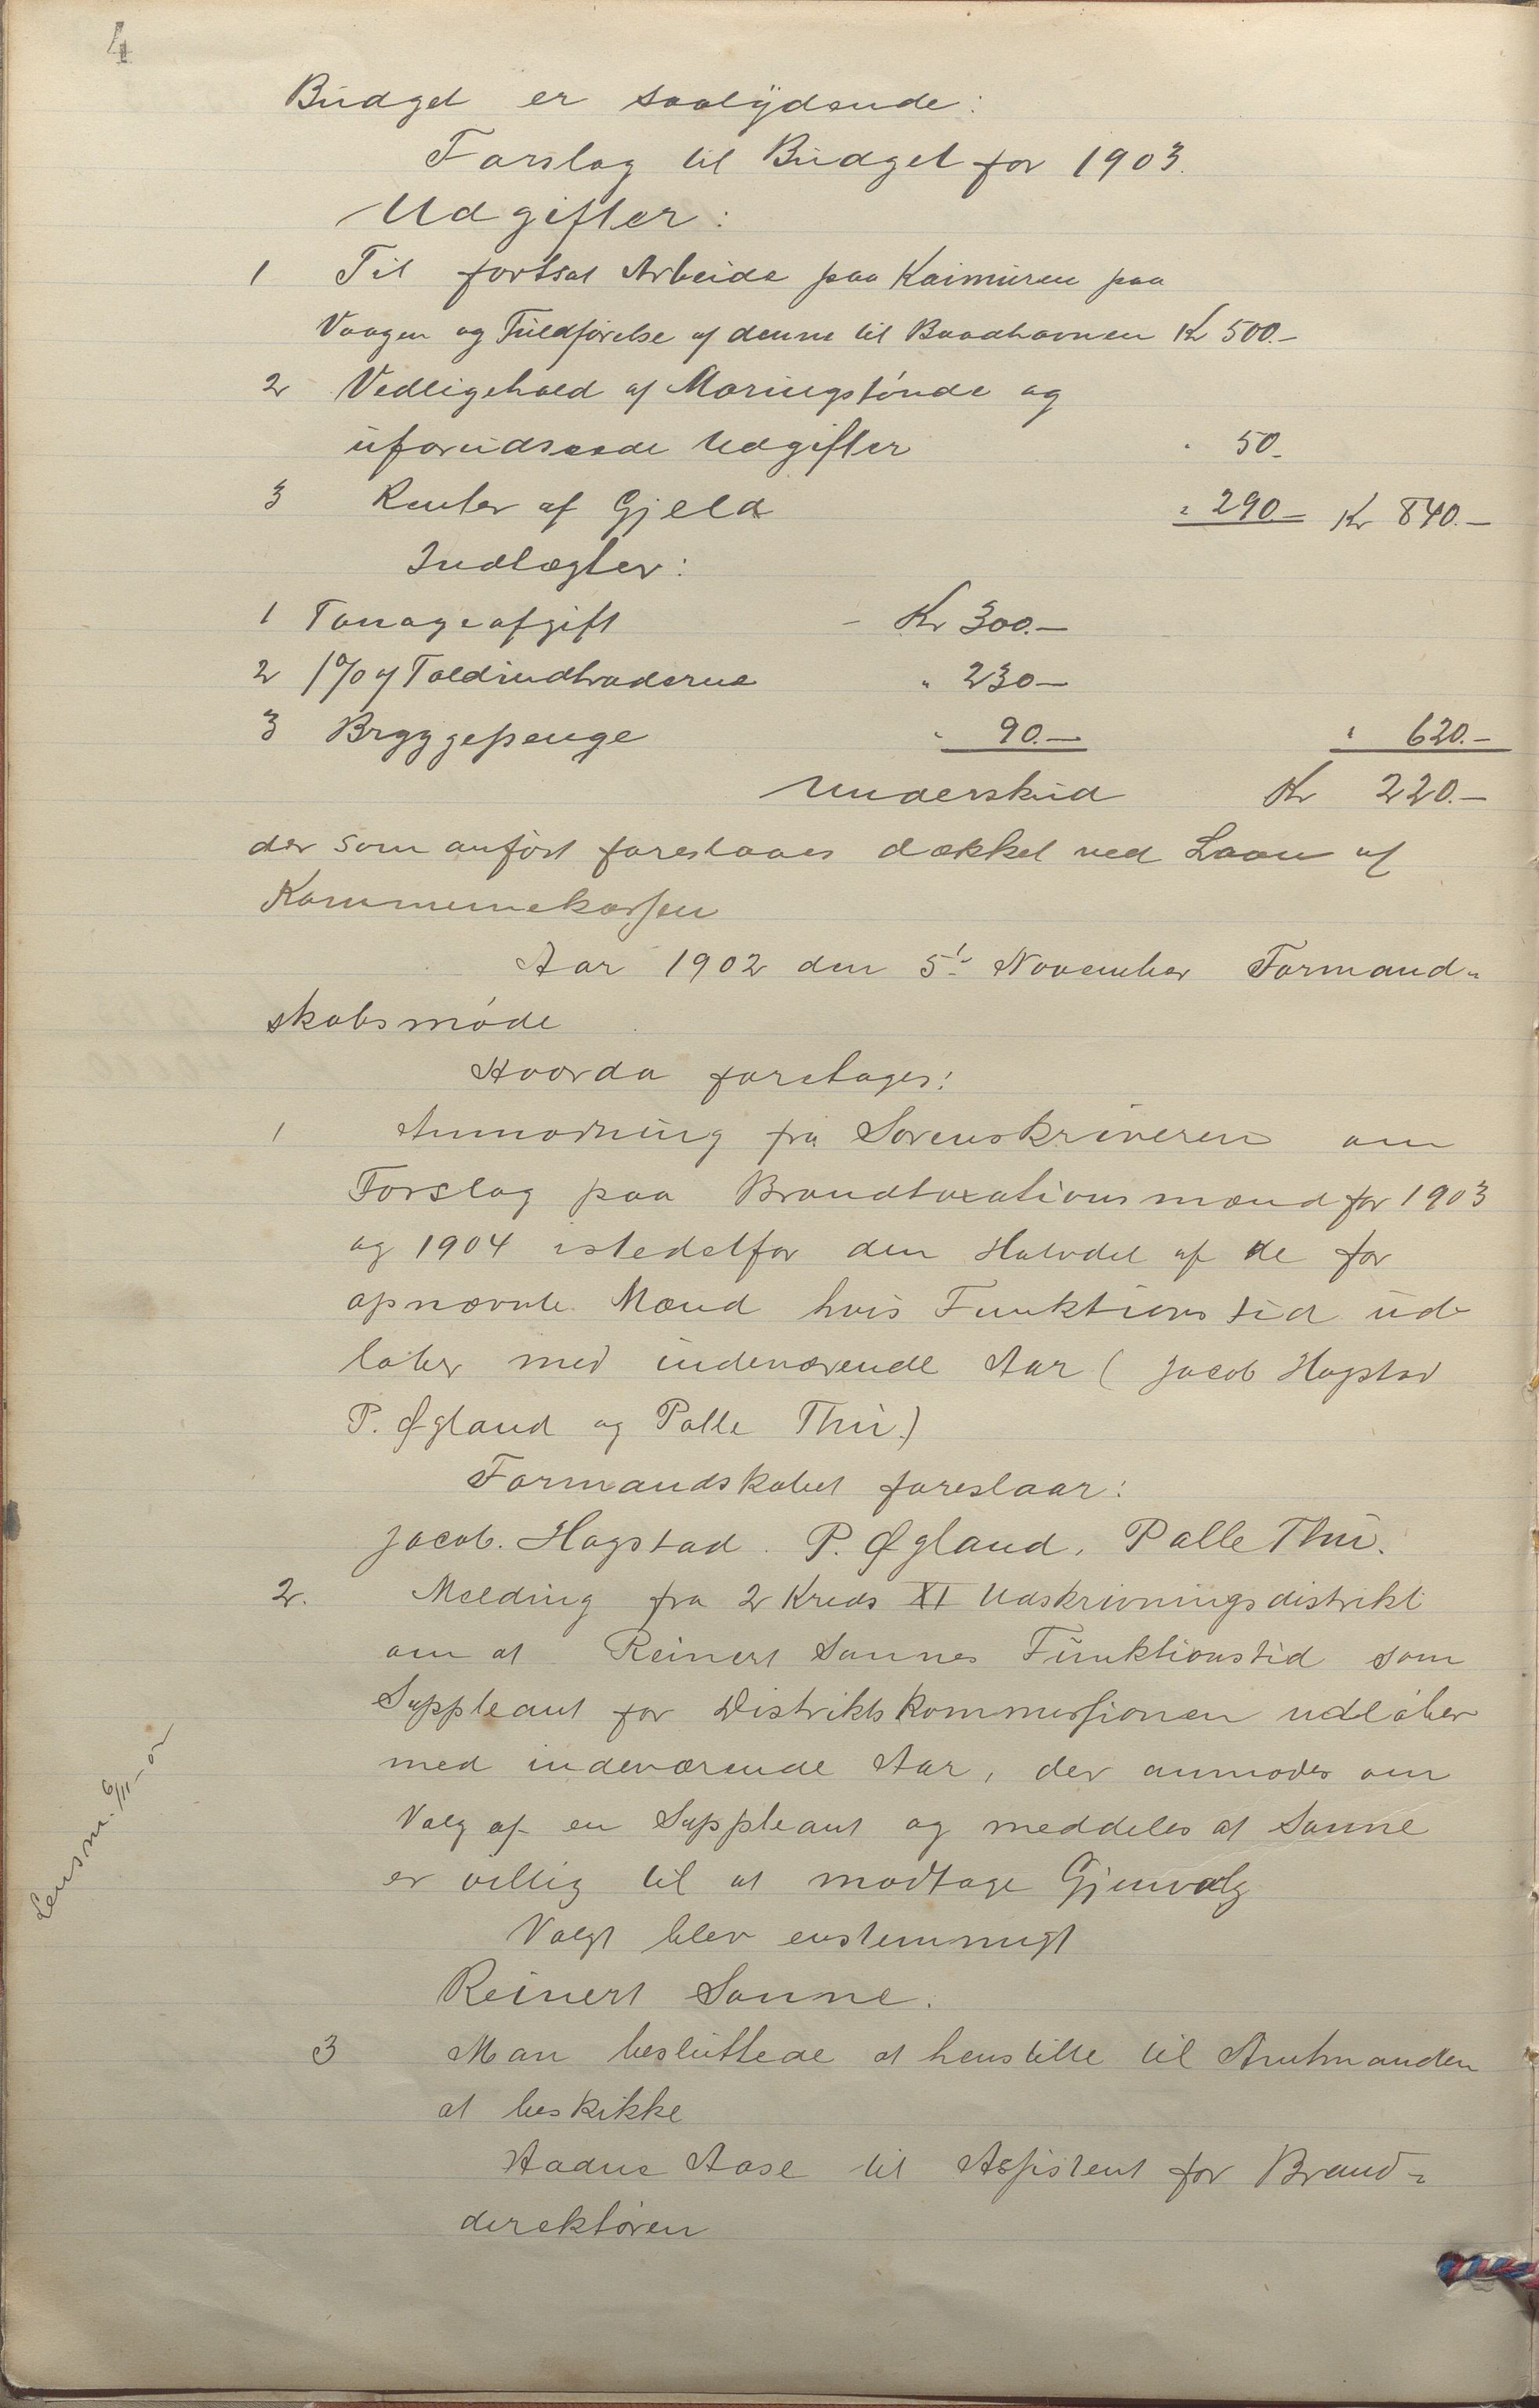 4
Budget er saalydende:
Forslag til Budget for 1903.
Udgifter:
1 Til fortsat Arbeide paa Kaimuren paa
Vaagen og Fuldførelse af denne til Baadhavnen Kr 500.-
2 Vedligehold af Moringstønde og
uforudseede Udgifter " 50.-
3 Renter af Gjeld " 290.- Kr 840.-
Indtægter:
1 Tonageafgift - Kr 300.-
2 1% af Toldindtraderne " 230.-
3 Bryggepenge " 90.- " 620.-
Underskud Kr 220.-
der som anført foreslaaes dækket ved Laan af
Kommunekassen
Aar 1902 den 5te November Formand-
skabsmøde
Hvorda foretages:
1 Anmodning fra Sorenskriveren om
Forslag paa Brandtaxationsmænd for 1903
og 1904 istedetfor den Halvdel af de før
opnævnte Mænd hvis Funktionstid ud-
løber med indeværende Aar (Jacob Hagstad
P. Øgland og Palle Thu.)
Formandskabet foreslaar:
Jacob. Hagstad. P. Øgland, Palle Thu.
2. Melding fra 2 Kreds XI Udskrivningsdistrikt
om at Reinert Sannes Funktionstid som
Suppleant for Distriktskommissionen udløber
med indeværende Aar, der anmodes om
Valg af en Suppleant og meddeles at Sanne
er villig til at modtage Gjenvalg
Valgt blev enstemmigt
Reinert Sanne.
Lensm. 6/11-02
3 Man besluttede at henstille til Amtmanden
at beskikke
Aadne Aase til Assistent for Brand-
direktøren